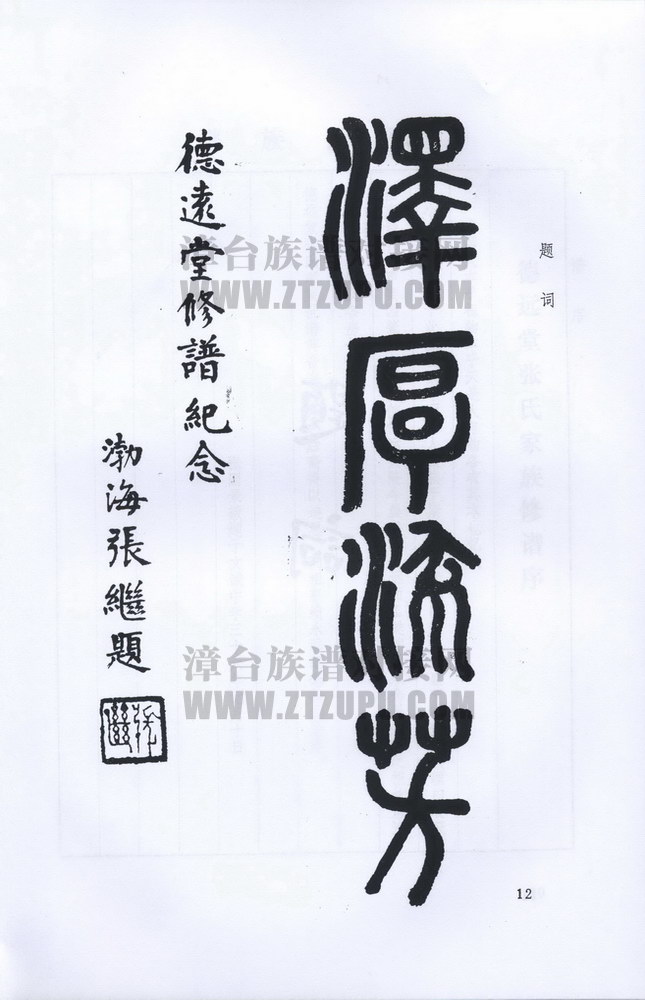 题词
澤厚流芳
德遠堂修譜紀念
渤海張繼題
張繼
漳台族谱对接网
WWW.ZTZUPU.COM
漳台族谱对接网
WWW.ZTZUPU.COM
12